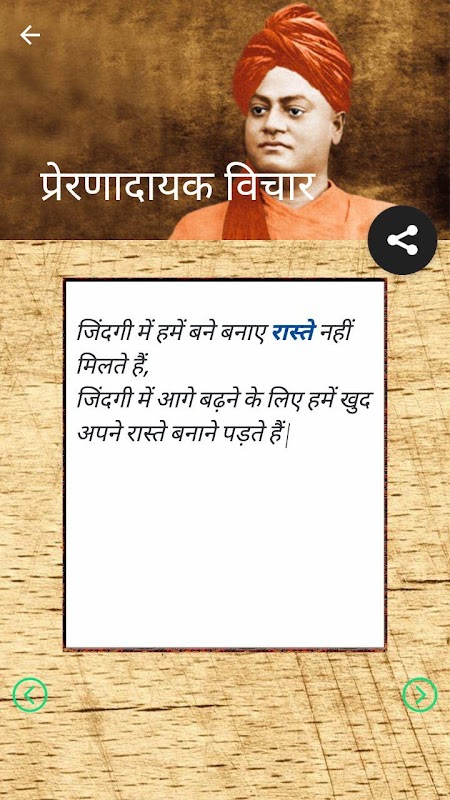 प्रेरणादायक विचार
जिंदगी में हमें बने बनाए रास्ते नहीं
मिलते हैं,
जिंदगी में आगे बढ़ने के लिए हमें खुद
अपने रास्ते बनाने पड़ते हैं|